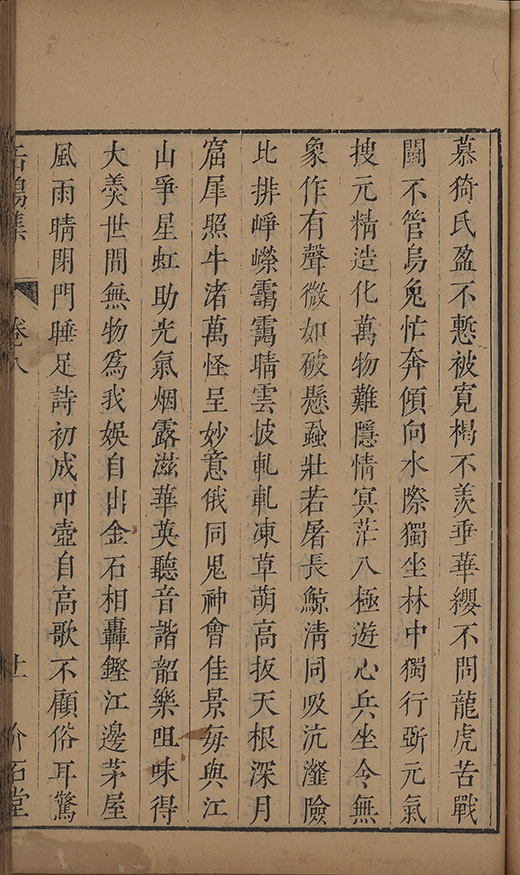 慕猗氏盈不慙被寛褐不羨垂華纓不問龍虎苦戰
鬬不管烏兔忙奔傾向水際獨坐林中獨行斲元氣
搜元精造化萬物難隱情冥茫八極遊心兵坐令無
象作有聲微如破懸蝨壯若屠長鯨清同吸沆瀣險
比排崢嶸靄靄晴雲披軋軋凍草萌高拔天根深月
窟犀照牛渚萬怪呈妙意俄同鬼神會佳景每與江
山爭星虹助光氣烟露滋華英聽音諧韶樂咀味得
大羮世間無物為我娛自出金石相轟鏗江邊茅屋
風雨晴閉門睡足詩初成叩壺自高歌不顧俗耳驚
卷八
十一
介石堂